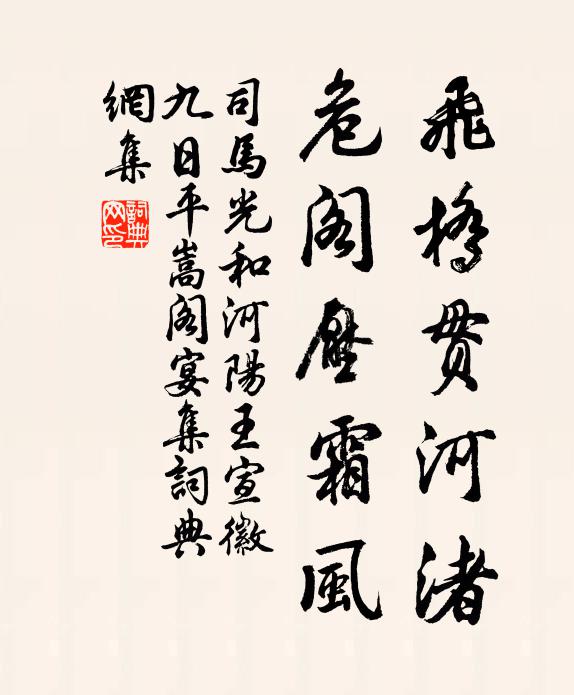 飛橋貫河渚
危阁壓霜風
司馬光和河陽王宣徽
九日平嵩阁宴集詞典
網集
詞典網印